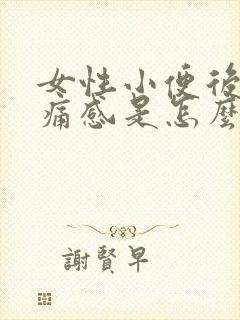 女性小便後
痛感是怎麼
謝賢早